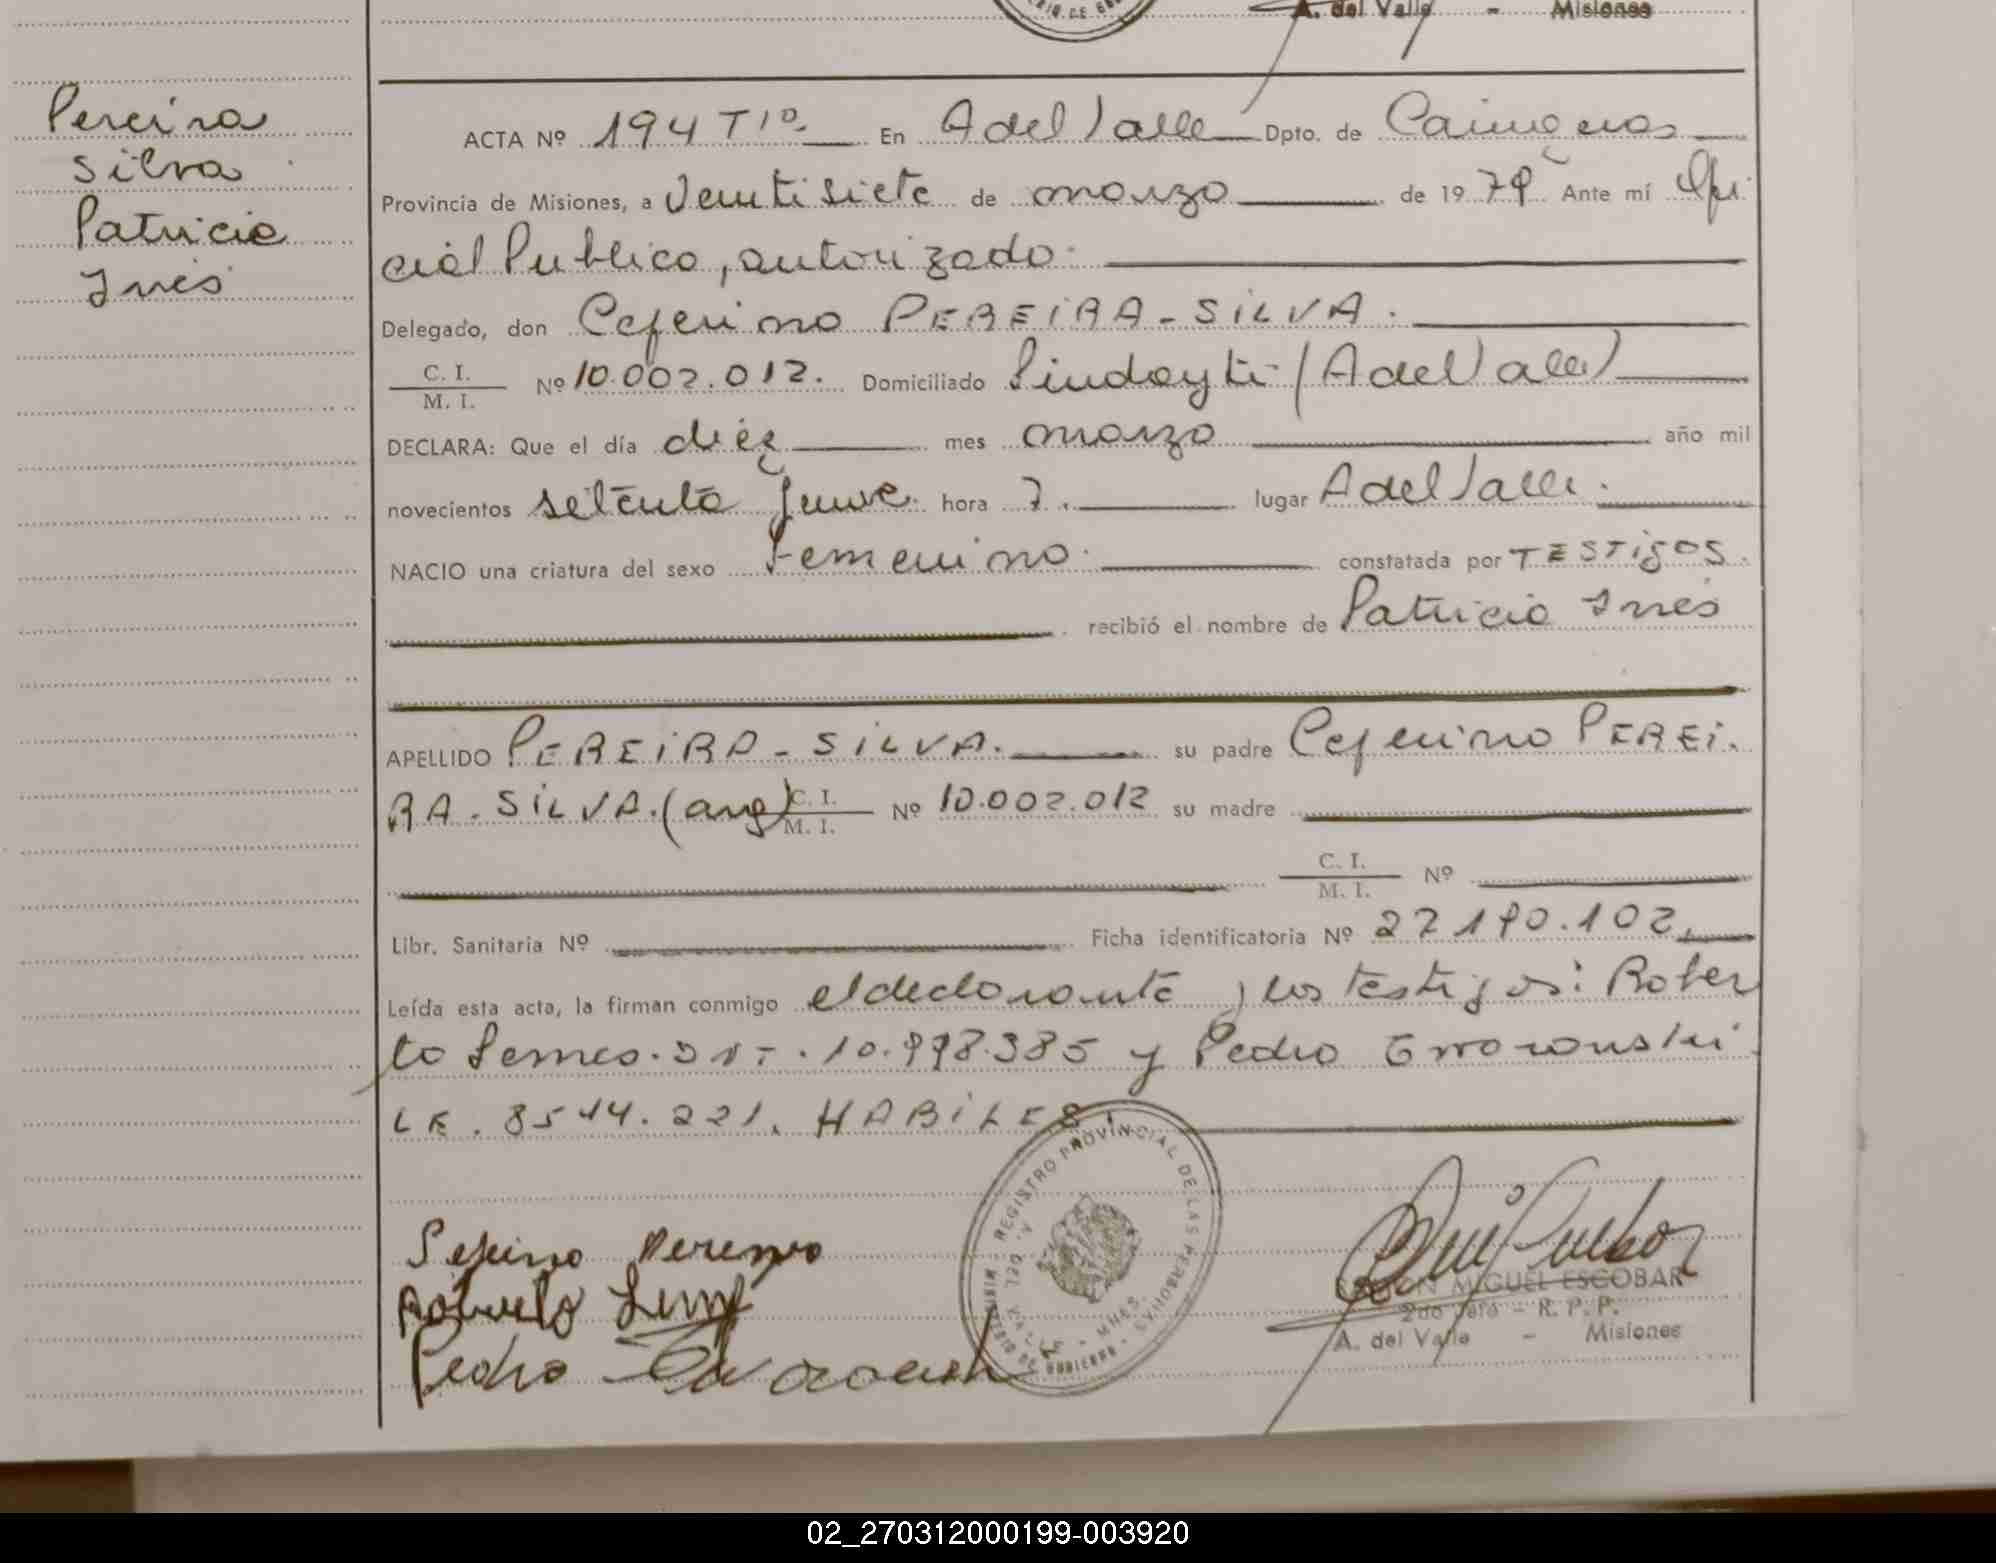 A. del Valle - Misiones
Pereira
Silva
Patricia
Inés
ACTA Nº 194 Tº En A del Valle Dpto. de Cainguas
Provincia de Misiones, a Veintisiete de marzo de 1979 Ante mí Ofi
cial Publico, autorizado.
Delegado, don Ceferino PEREIRA-SILVA.
C. I.
M. I. Nº 10.002.012. Domiciliado Pindayti (A del Valle)
DECLARA: Que el día diez mes marzo año mil
novecientos setenta y nueve hora 7. lugar A del Valle.
NACIO una criatura del sexo Femenino. constatada por TESTigos.
recibió el nombre de Patricia Inés
APELLIDO PEREIRA-SILVA. su padre Ceferino PEREi.
RA-SILVA. (arg) C. I.
M. I. Nº 10.002.012 su madre
C. I.
M. I. Nº
Libr. Sanitaria Nº Ficha identificatoria Nº 27190.102.
Leída esta acta, la firman conmigo el declarante y los testigos: Rober
to DNI. 10.998.385 y Pedro
LE. 8544.221. HABiLES.
REGISTRO PROVINCIAL DE LAS PERSONAS
MINISTERIO DE GOBIERNO
A. DEL VALLE - MNES.
Pedro
MIGUEL ESCOBAR
2do Jefe - R. P. P.
A. del Valle - Misiones
02_270312000199-003920